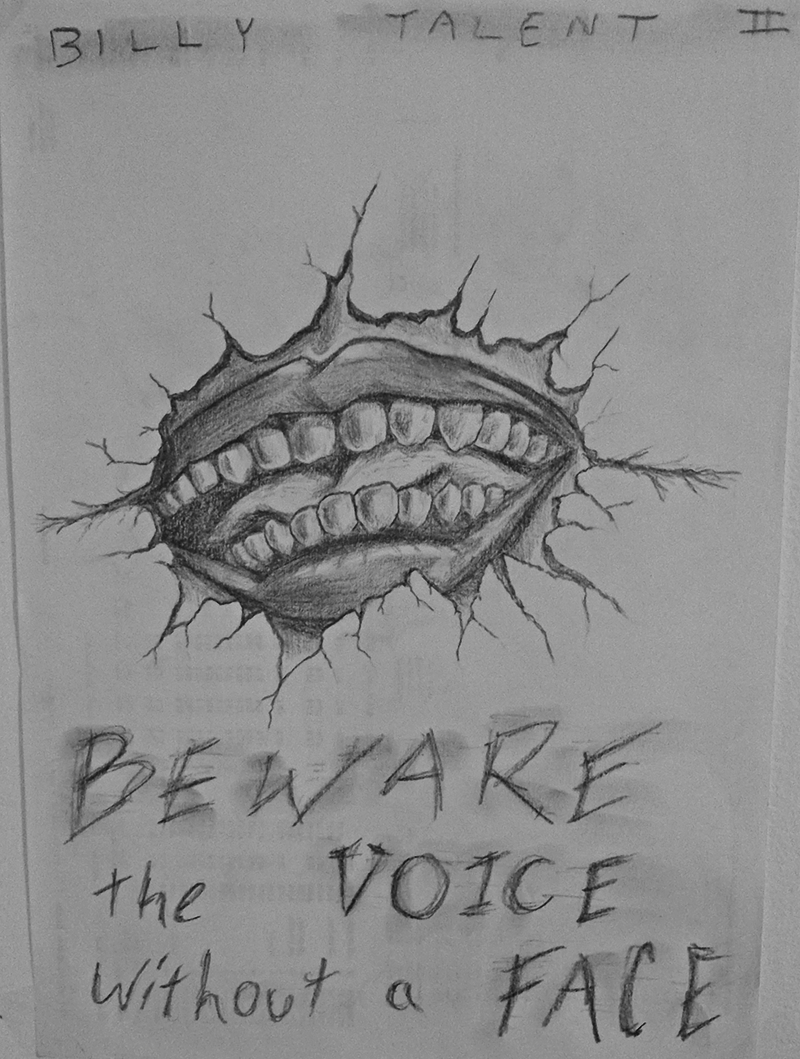 BILLY TALENT II
BEWARE
the VOICE
without a FACE